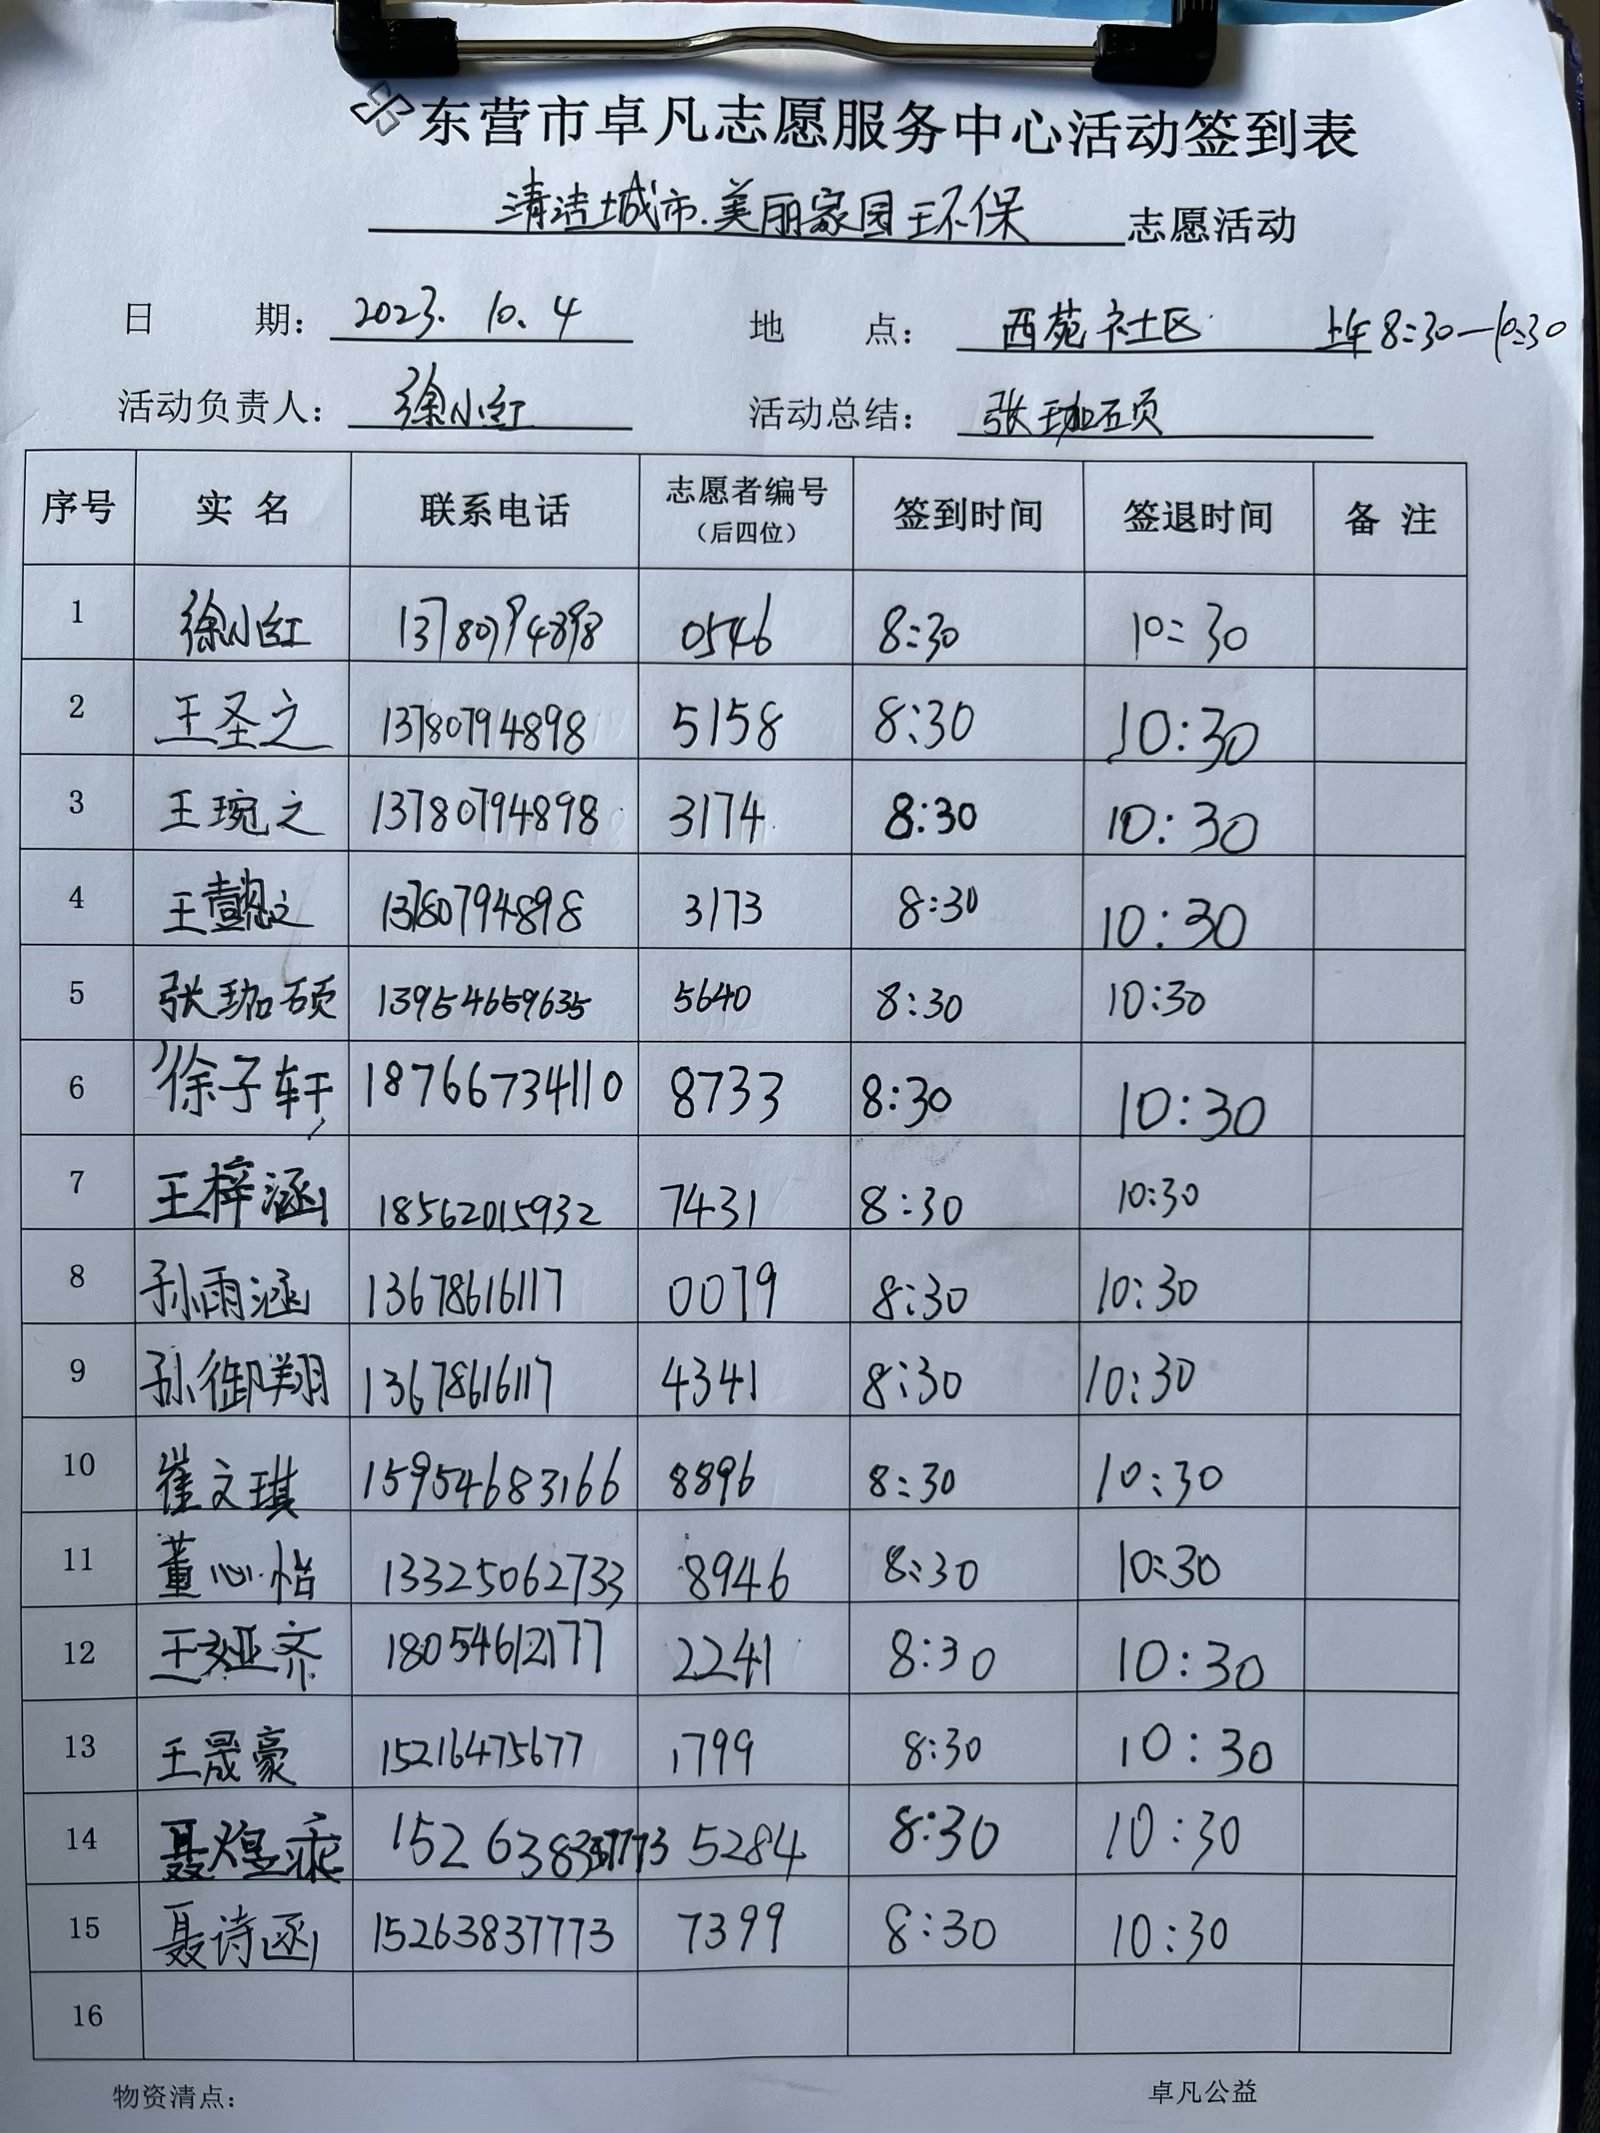 东营市卓凡志愿服务中心活动签到表
清洁城市.美丽家园环保 志愿活动
日 期: 2023.10.4 地 点: 西苑社区 上午8:30—10:30
活动负责人: 徐小红 活动总结: 张珈硕
序号 实名 联系电话 志愿者编号 (后四位) 签到时间 签退时间 备注
1 徐小红 13780794898 0546 8:30 10:30
2 王圣之 13780794898 5158 8:30 10:30
3 王琬之 13780794898 3174 8:30 10:30
4 王懿之 13780794898 3173 8:30 10:30
5 张珈硕 13954659635 5640 8:30 10:30
6 徐子轩 18766734110 8733 8:30 10:30
7 王梓涵 18562015932 7431 8:30 10:30
8 孙雨涵 13678616117 0079 8:30 10:30
9 孙御翔 13678616117 4341 8:30 10:30
10 崔文琪 15954683166 8896 8:30 10:30
11 董心怡 13325062733 8946 8:30 10:30
12 王娅齐 18054612177 2241 8:30 10:30
13 王晟豪 15216475677 1799 8:30 10:30
14 聂煜 5284 8:30 10:30
15 聂诗函 15263837773 7399 8:30 10:30
16
物资清点: 卓凡公益